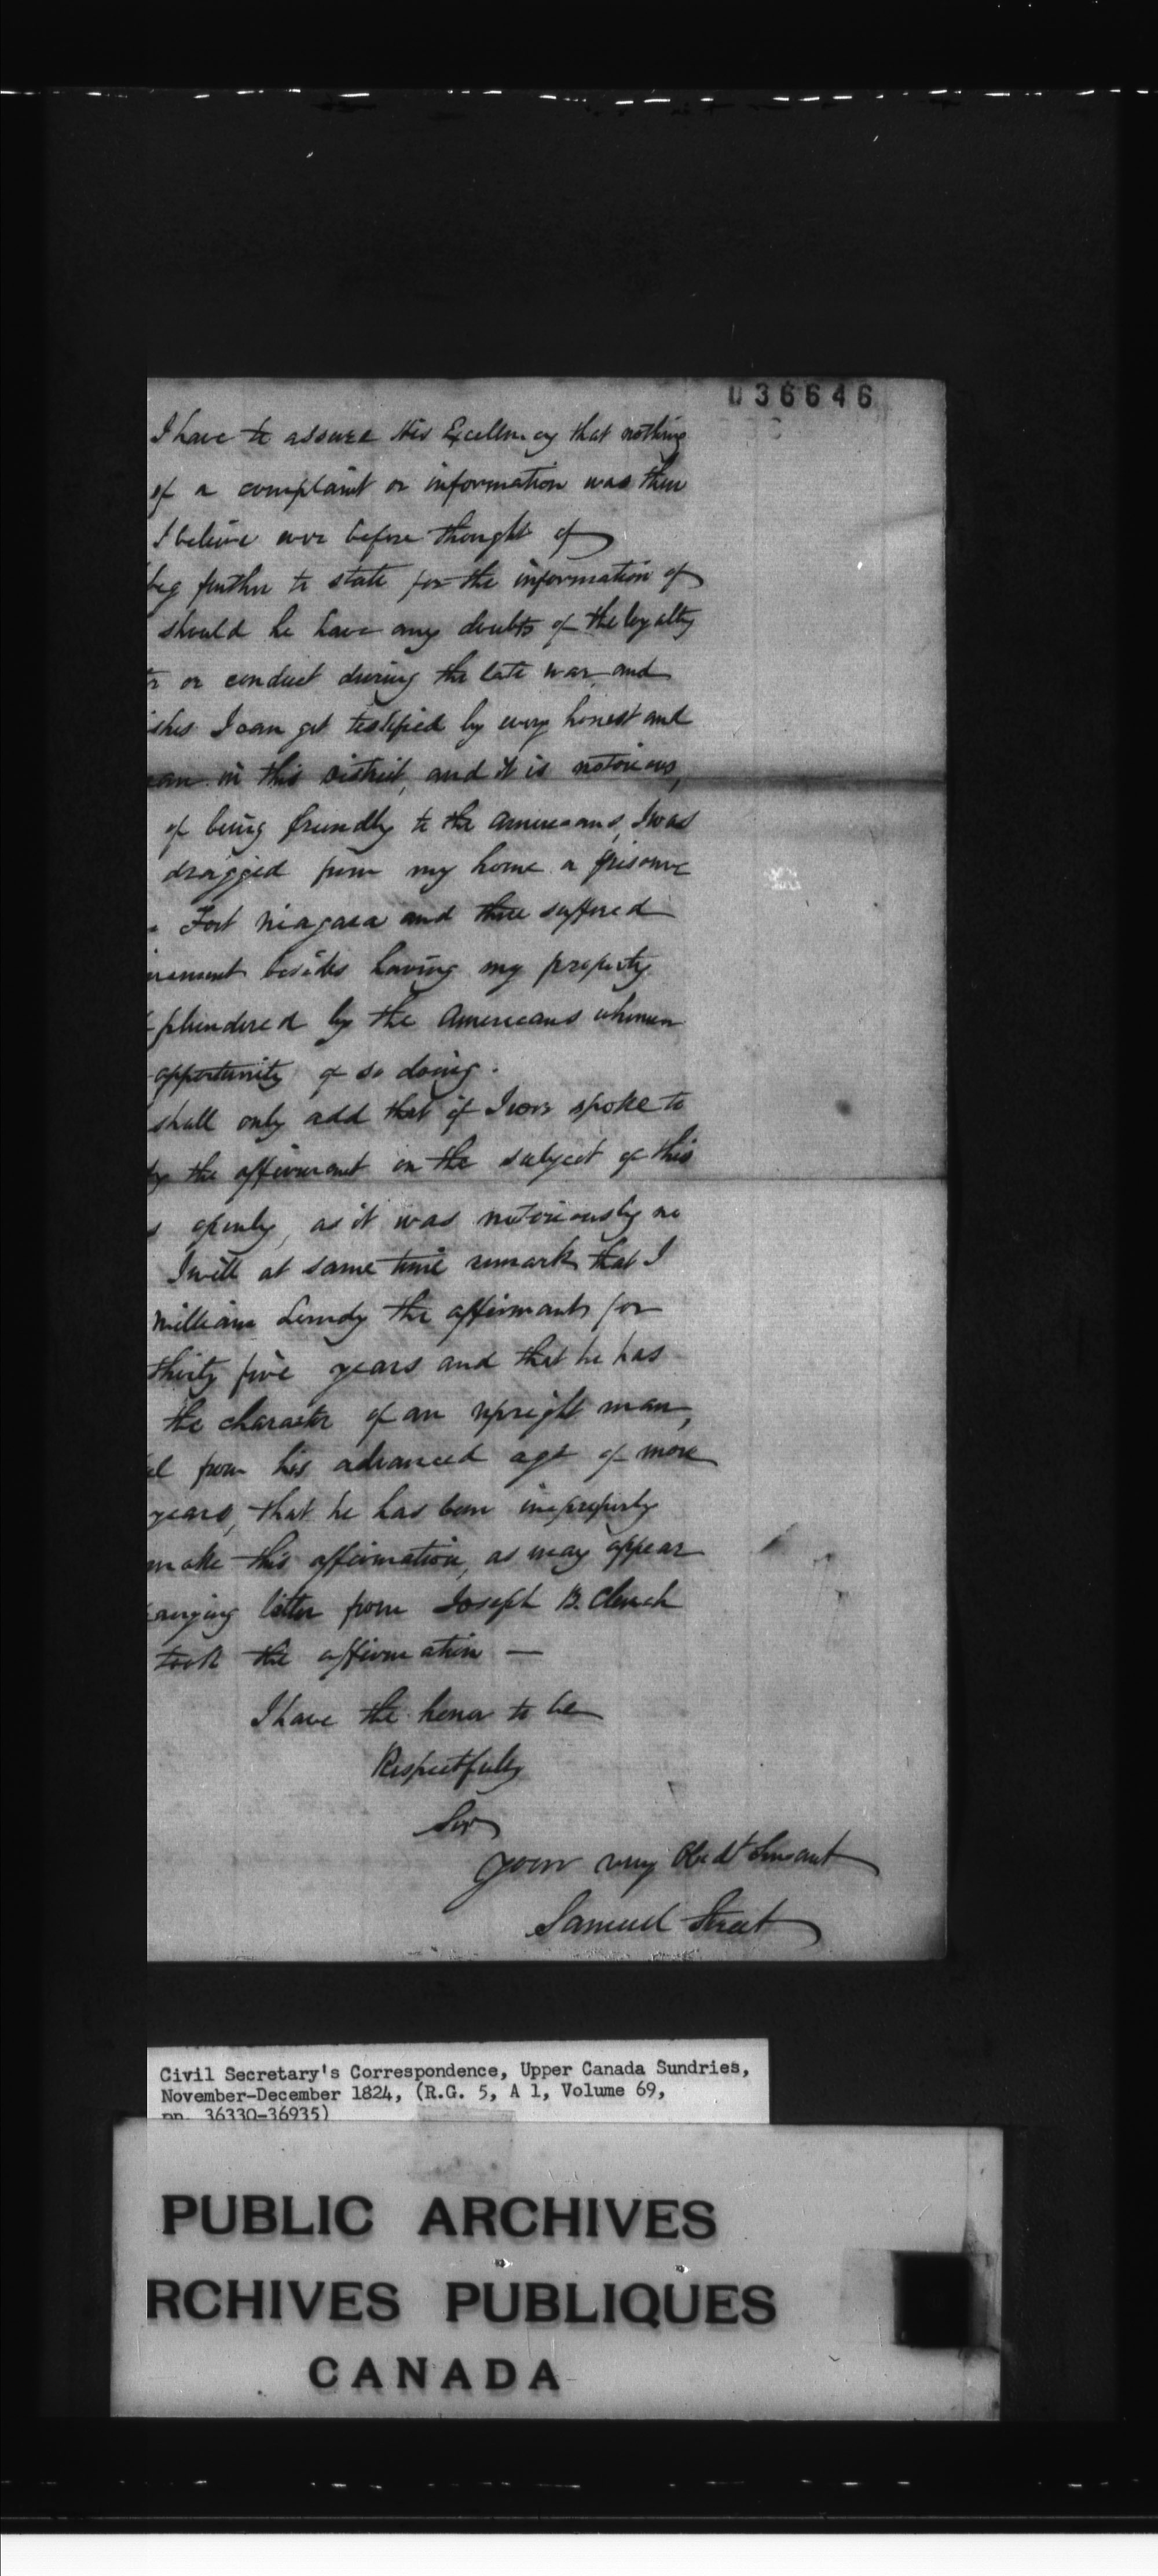 036646
I have to assure His Excellency that nothing
of a complaint or information was then
I believe ever before thought of
beg further to state for the information of
should he have any doubts of the loyalty
or conduct during the late war and
ishes I can get testified by every honest and
in this District, and it is notorious,
of being friendly to the Americans, I was
dragged from my home a prisoner
Fort Niagara and there suffered
besides having my property
plundered by the Americans whenever
opportunity of so doing.
shall only add that if I ever spoke to
the affirmant on the subject of this
s openly, as it was notoriously no
I will at same time remark that I
William Lundy the affirmant for
thirty five years and that he has
the character of an upright man,
from his advanced age of more
years, that he has been improperly
make this affirmation, as may appear
letter from Joseph B. Clench
took the affirmation —
I have the honor to be
Respectfully
Sir
Your very Obedt Servant
Samuel Street
Civil Secretary's Correspondence, Upper Canada Sundries,
November-December 1824, (R.G. 5, A 1, Volume 69,
pp. 36330-36935)
PUBLIC ARCHIVES
RCHIVES PUBLIQUES
CANADA